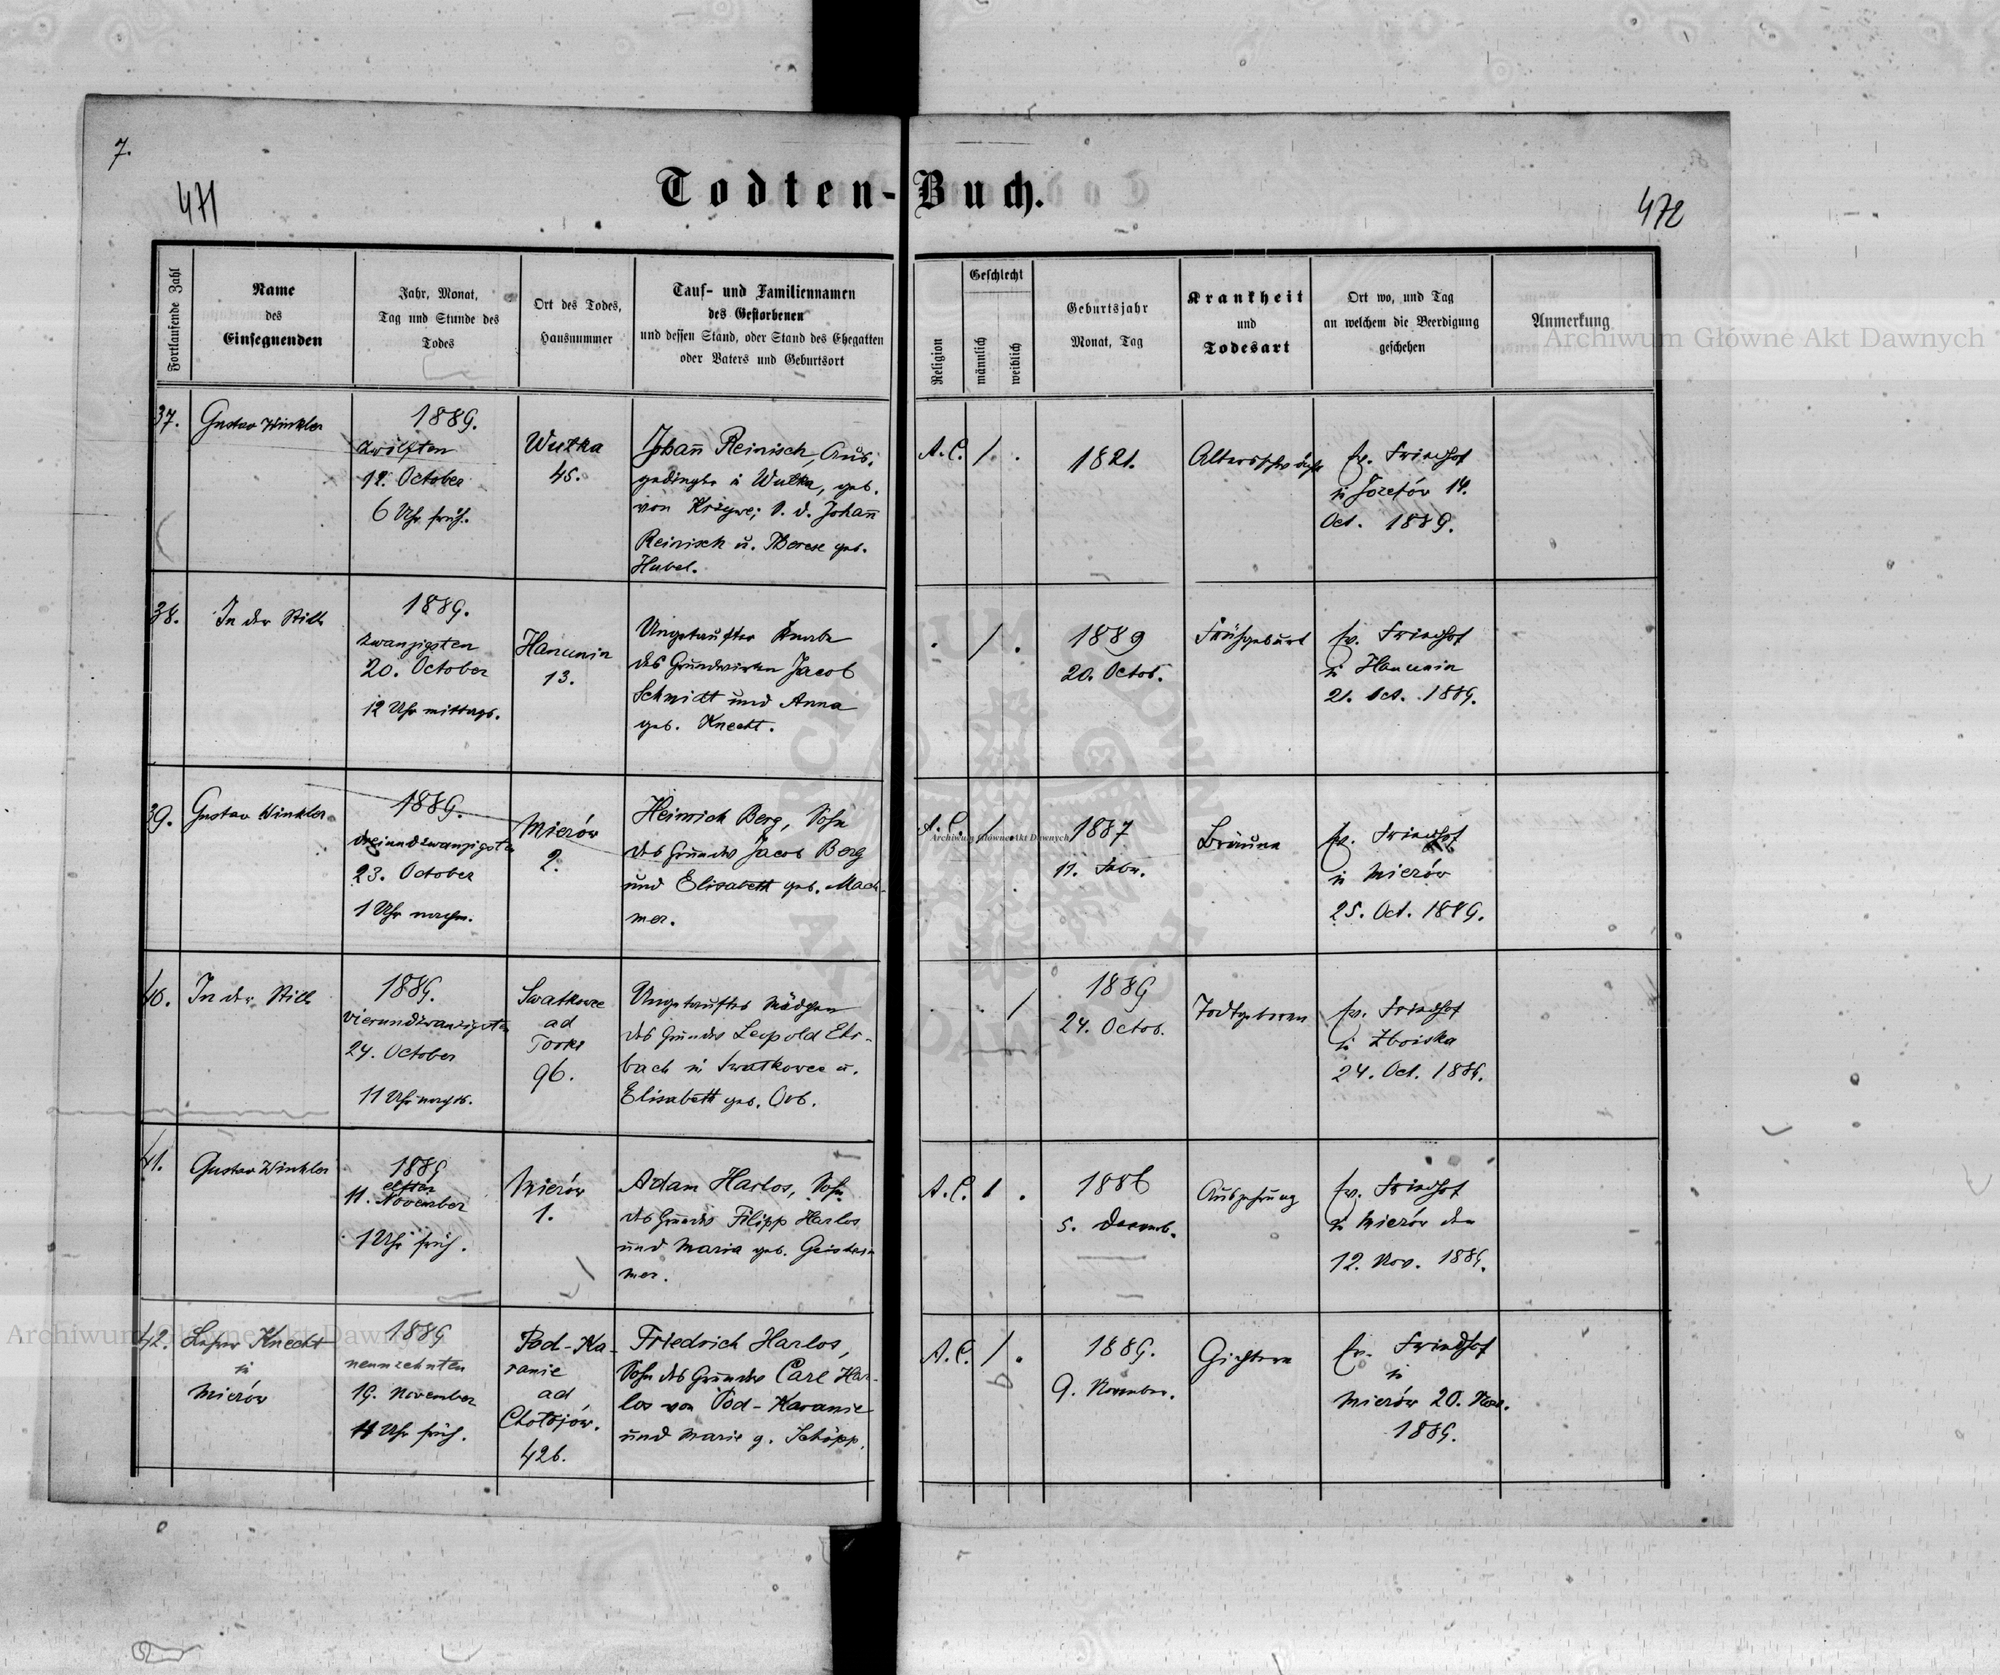 7.
471
472
Todten-Buch.
Fortlaufende Zahl
Name
des
Einsegnenden
Jahr, Monat,
Tag und Stunde des
Todes
Ort des Todes,
Hausnummer
Tauf- und Familiennamen
des Gestorbenen
und dessen Stand, oder Stand des Ehegatten
oder Vaters und Geburtsort
Religion
Geschlecht
männlich
weiblich
Geburtsjahr
Monat, Tag
Krankheit
und
Todesart
Ort wo, und Tag
an welchem die Beerdigung
geschehen
Anmerkung
37.
Gustav Winkler
1889.
zwölften
12. October
6 Uhr früh.
Wutka
45.
Johann Reinisch, Aus-
gedingter in Wutka, geb.
von Krzywe; S. d. Johann
Reinisch u. Therese geb.
Habel.
A.C.
/
.
1821.
Altersschwäche
Ev. Friedhof
in Józefów 14.
Oct. 1889.
38.
In der Stille
1889.
zwanzigsten
20. October
12 Uhr mittags.
Hanunin
13.
Ungetaufter Knabe
des Grundwirten Jacob
Schmidt und Anna
geb. Knecht.
.
/
.
1889
20. Octob.
Frühgeburt
Ev. Friedhof
in Hanunin
21. Oct. 1889.
39.
Gustav Winkler
1889.
dreiundzwanzigsten
23. October
1 Uhr nachm.
Mierów
2.
Heinrich Berg, Sohn
des Grundw. Jacob Berg
und Elisabeth geb. Mach-
mer.
A.C.
/
.
1887
11. Febr.
Bräune
Ev. Friedhof
in Mierów
25. Oct. 1889.
40.
In der Stille
1889.
vierundzwanzigsten
24. October
11 Uhr nachts.
Sewatkowce
ad
96.
Ungetauftes Mädchen
des Grundw. Leopold Ehr-
bach in u.
Elisabeth geb. Orb.
.
.
/
1889
24. Octob.
Todtgeboren
Ev. Friedhof
in Zboiska
24. Oct. 1889.
41.
Gustav Winkler
1889
elften
11. November
1 Uhr früh.
Mierów
1.
Adam Harlos, Sohn
des Grundw. Filipp Harlos
und Maria geb.
mer.
A.C.
/
.
1886
5. Decemb.
Auszehrung
Ev. Friedhof
in Mierów den
12. Nov. 1889.
42.
Lehrer Knecht
in
Mierów
1889
neunzehnten
19. November
11 Uhr früh.
Pod-Ka-
ranie
ad
Chołojów.
426.
Friedrich Harlos,
Sohn des Grundw. Carl Har-
los von Pod-Karanie
und Marie g. Schöpp.
A.C.
/
.
1889.
9. November.
Gichtern
Ev. Friedhof
in
Mierów 20. Nov.
1889.
Archiwum Główne Akt Dawnych
Archiwum Główne Akt Dawnych
Archiwum Główne Akt Dawnych